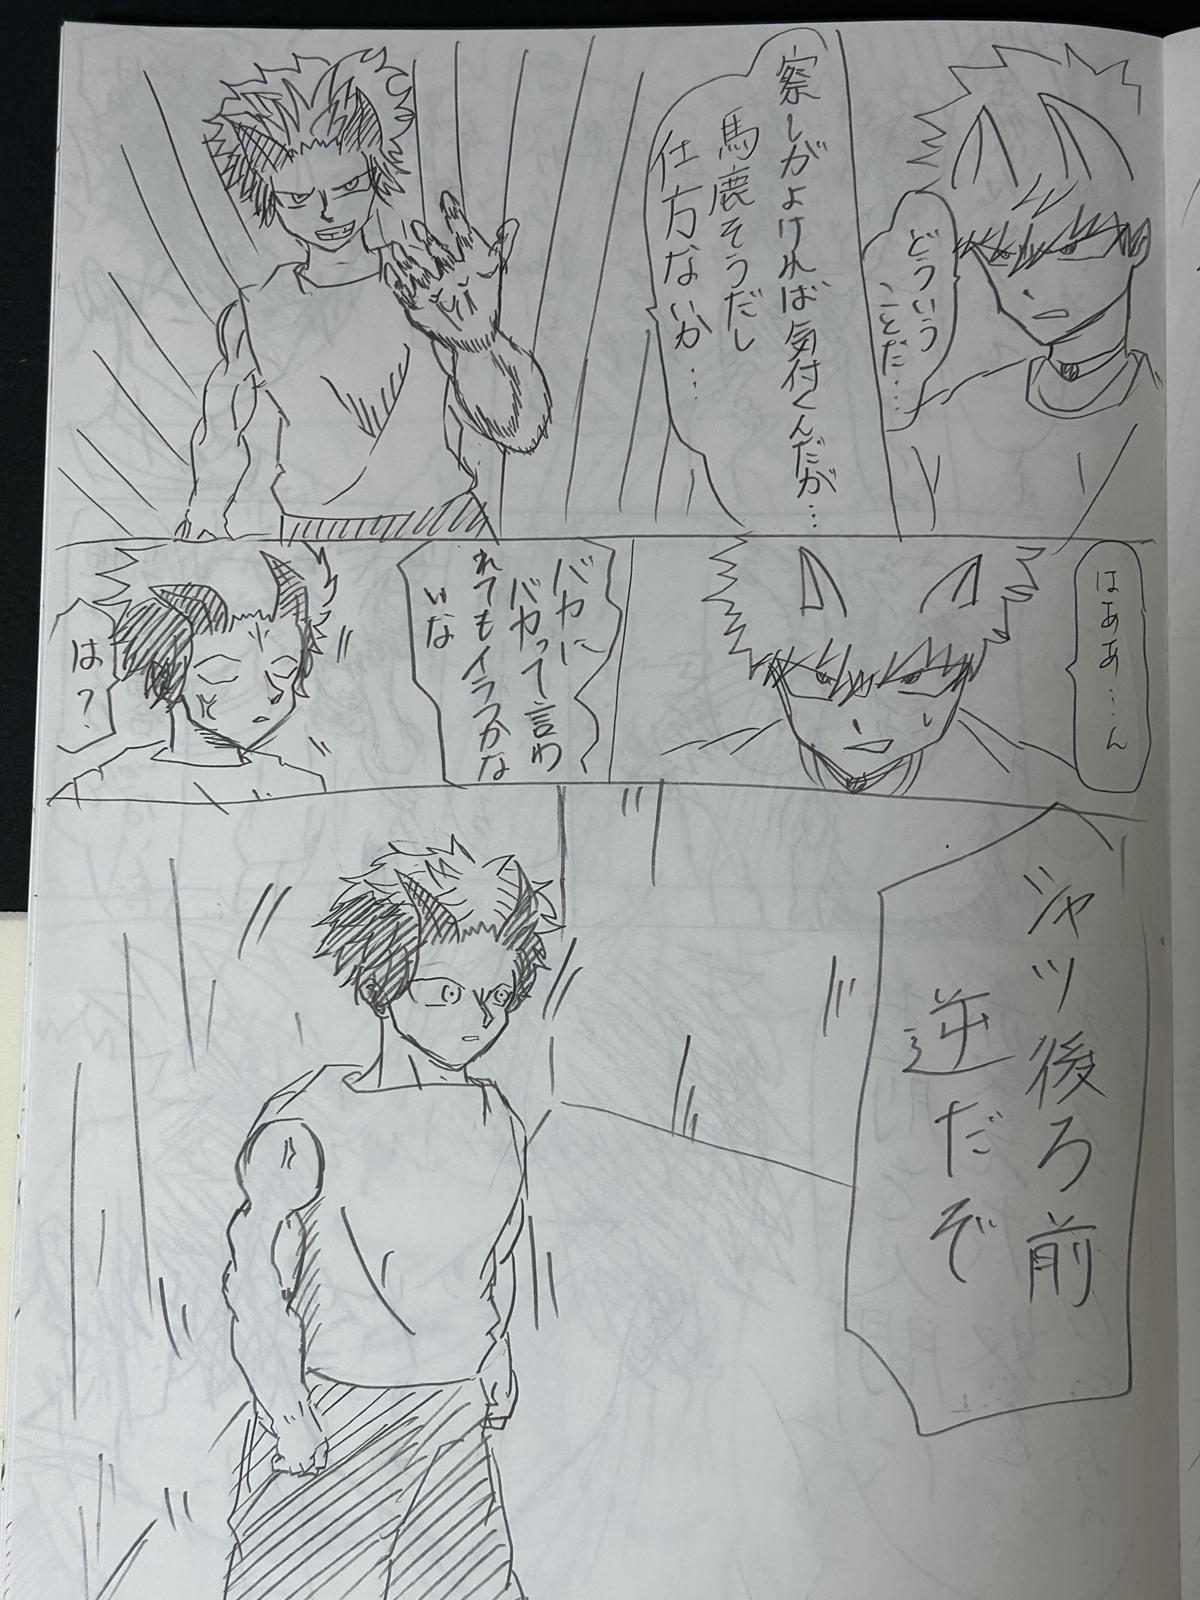 どういう
ことだ…
察しがよければ気付くんだが…
馬鹿そうだし
仕方ないか…
はああ…ん
バカに
バカって言わ
れてもイラつかな
いな
は?
シャツ後ろ前
逆だぞ